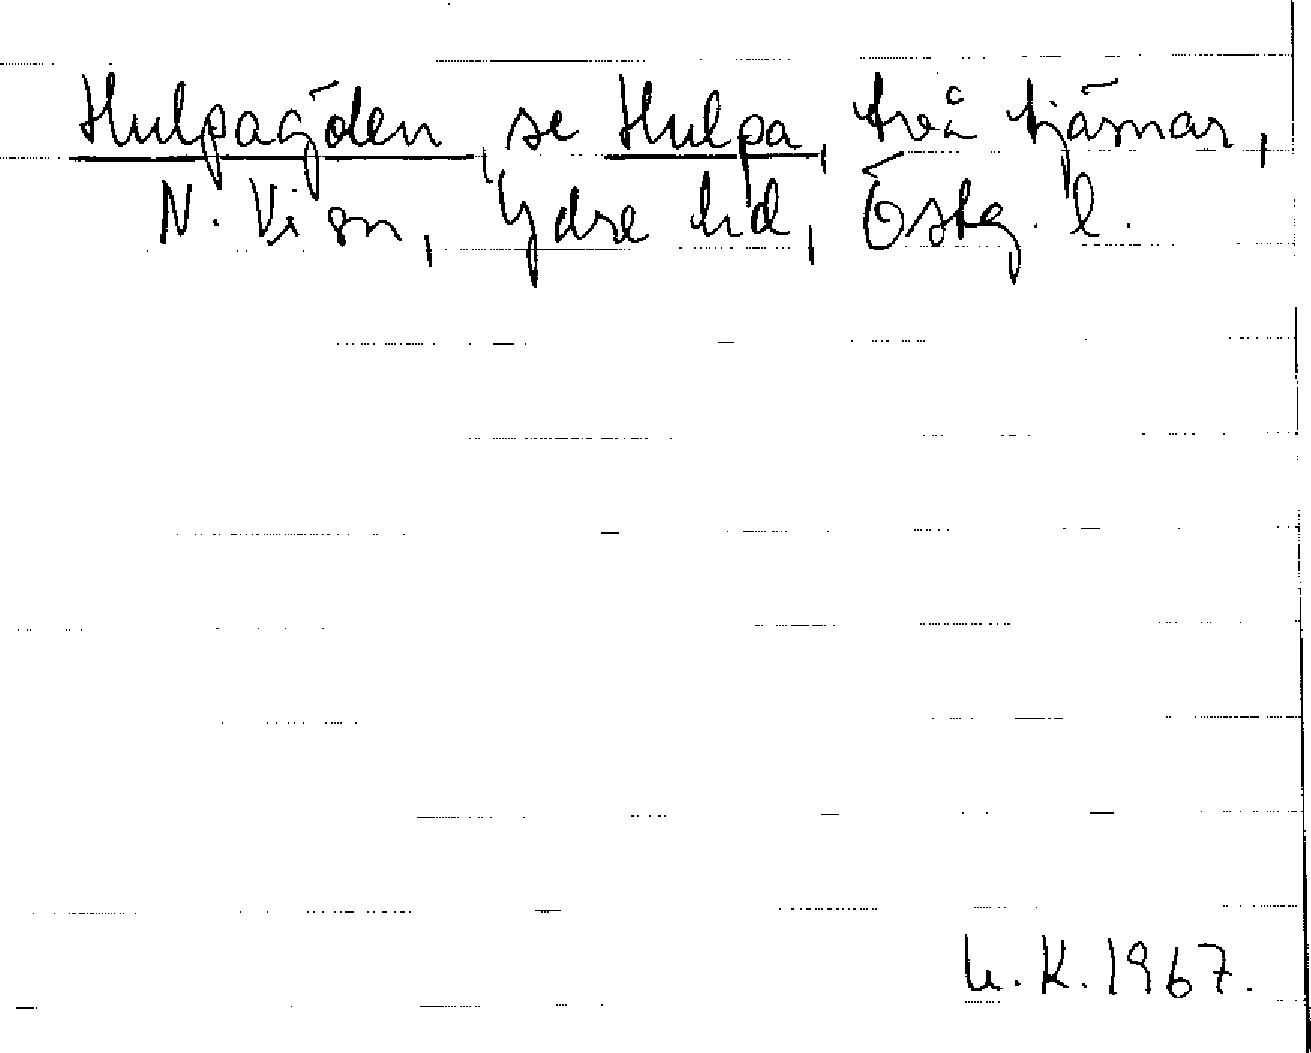 Hulpagöden, se Hulpa, två tjärnar,
N. Vi sn, Ydre hd, Östg. l.
U. K. 1967.